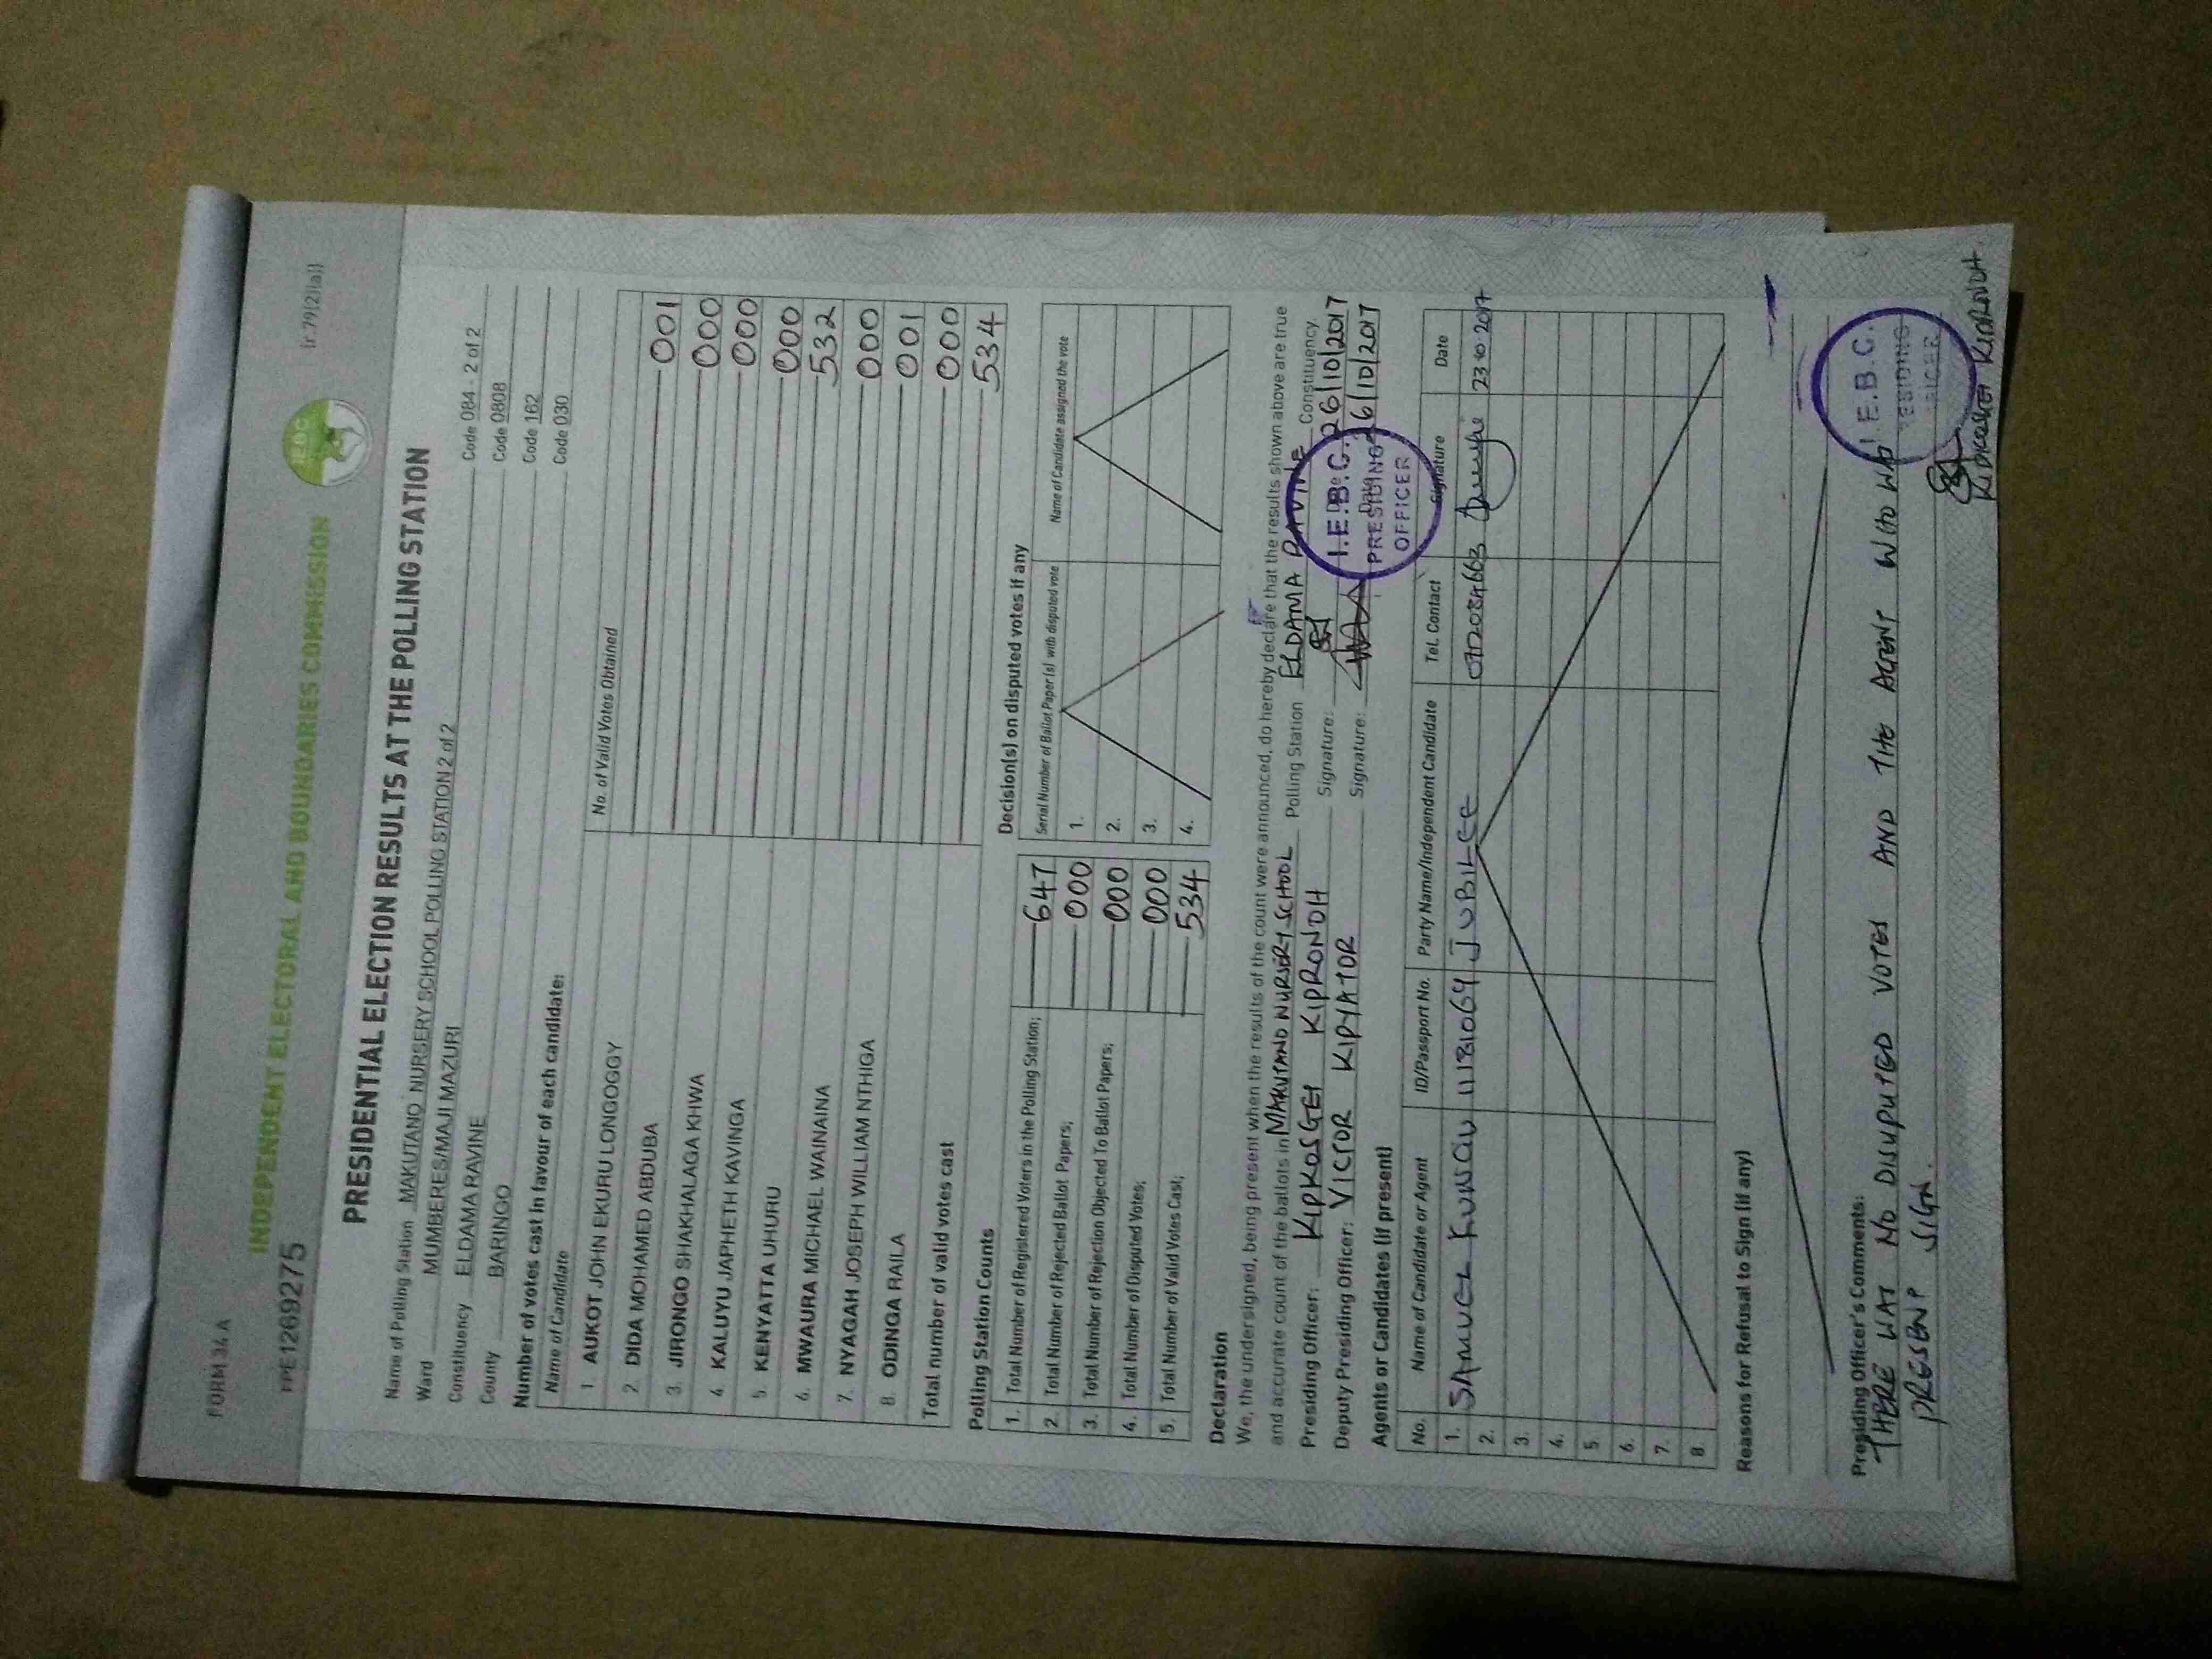 FORM 34 A
INDEPENDENT ELECTORAL AND BOUNDARIES COMMISSION
IEBC
(r.79(2)(a))
PPE1269275
PRESIDENTIAL ELECTION RESULTS AT THE POLLING STATION
Name of Polling Station MAKUTANO NURSERY SCHOOL POLLING STATION 2 of 2 Code 084 - 2 of 2
Ward MUMBERES/MAJI MAZURI Code 0808
Constituency ELDAMA RAVINE Code 162
County BARINGO Code 030
Number of votes cast in favour of each candidate:
Name of Candidate No. of Valid Votes Obtained
1. AUKOT JOHN EKURU LONGOGGY 001
2. DIDA MOHAMED ABDUBA 000
3. JIRONGO SHAKHALAGA KHWA 000
4. KALUYU JAPHETH KAVINGA 000
5. KENYATTA UHURU 532
6. MWAURA MICHAEL WAINAINA 000
7. NYAGAH JOSEPH WILLIAM NTHIGA 001
8. ODINGA RAILA 000
Total number of valid votes cast 534
Polling Station Counts
1. Total Number of Registered Voters in the Polling Station; 647
2. Total Number of Rejected Ballot Papers; 000
3. Total Number of Rejection Objected To Ballot Papers; 000
4. Total Number of Disputed Votes; 000
5. Total Number of Valid Votes Cast; 534
Decision(s) on disputed votes if any
Serial Number of Ballot Paper(s) with disputed vote Name of Candidate assigned the vote
1.
2.
3.
4.
Declaration
We, the undersigned, being present when the results of the count were announced, do hereby declare that the results shown above are true
and accurate count of the ballots in MAKUTANO NURSERY SCHOOL Polling Station ELDAMA RAVINE Constituency.
Presiding Officer: KIPKOSGEI KIPRONOH Signature: Date 26/10/2017
Deputy Presiding Officer: VICTOR KIPYATOR Signature: Date 26/10/2017
I.E.B.C.
PRESIDING
OFFICER
Agents or Candidates (if present)
No. Name of Candidate or Agent ID/Passport No. Party Name/Independent Candidate Tel. Contact Signature Date
1. SAMUEL 11181064 JUBILEE 0720284663 23·10·2017
2.
3.
4.
5.
6.
7.
8.
Reasons for Refusal to Sign (if any)
Presiding Officer's Comments:
THERE WAS NO DISUPUTED VOTES AND THE AGENT WHO WAS
PRESENP SIGN.
I.E.B.C.
ESIDING
FICER
KIPKOSGEI KIPRONOH.